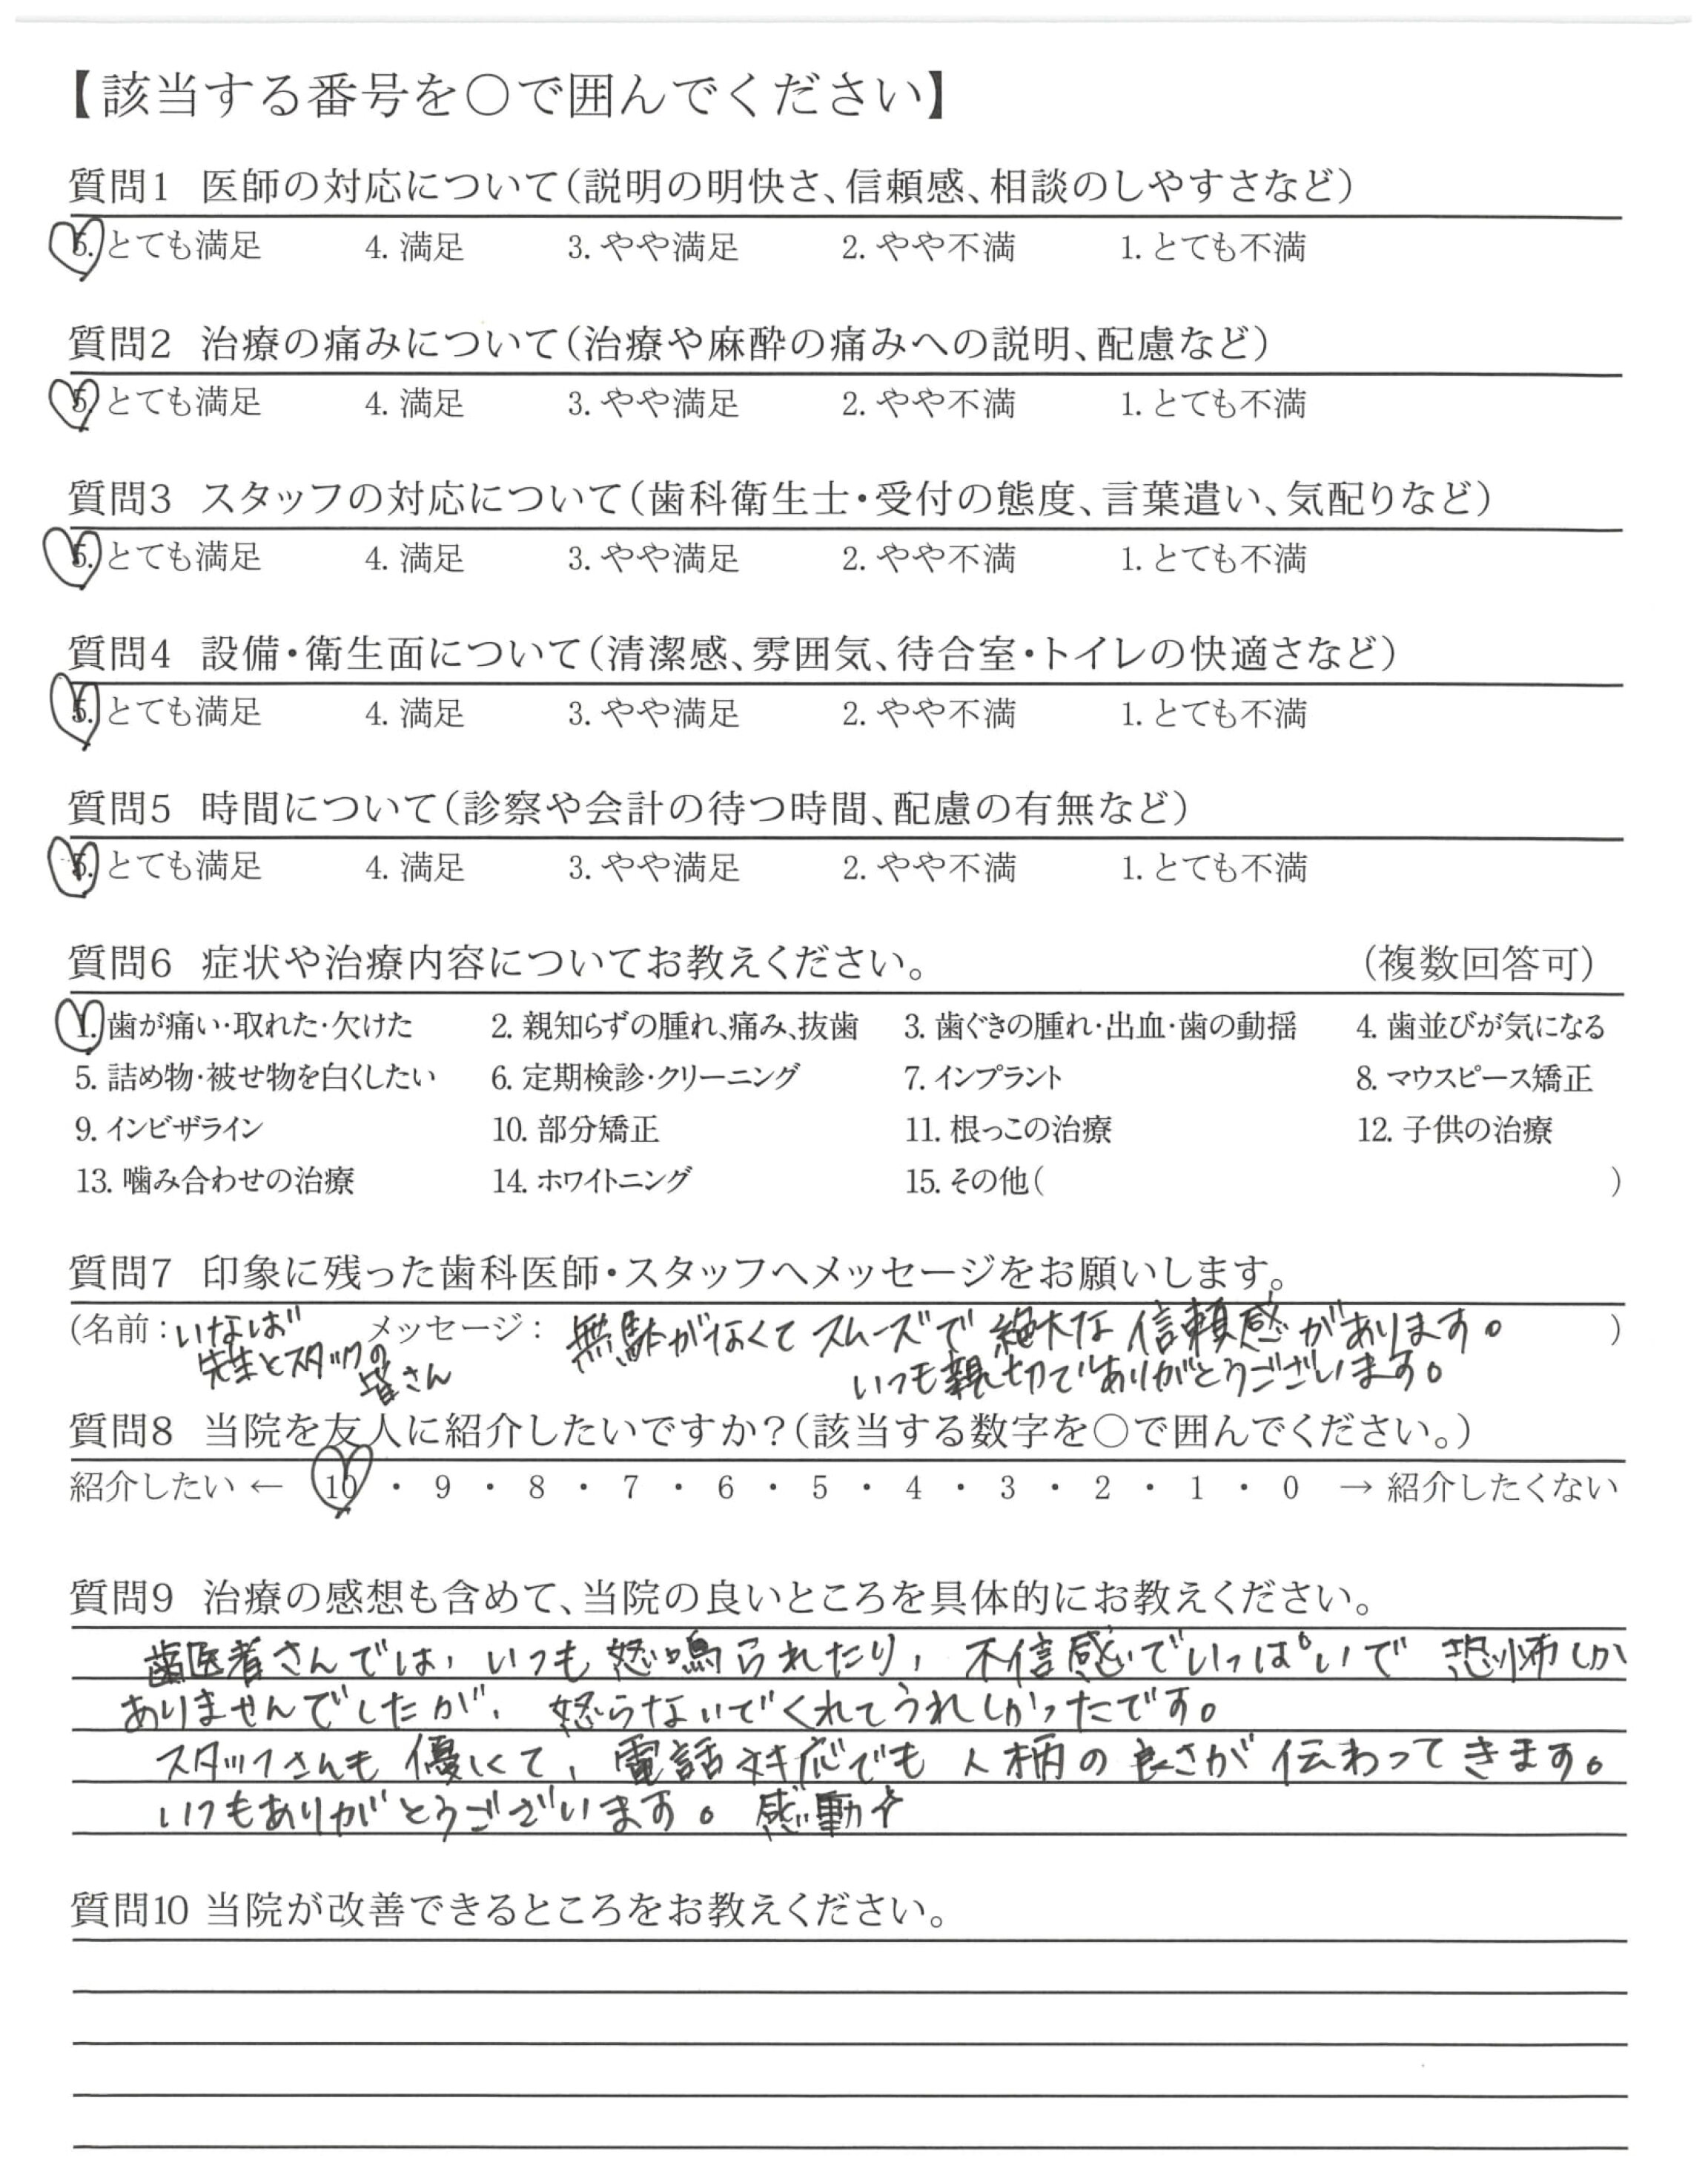 【該当する番号を○で囲んでください】
質問1 医師の対応について(説明の明快さ、信頼感、相談のしやすさなど)
5. とても満足 4. 満足 3. やや満足 2. やや不満 1. とても不満
質問2 治療の痛みについて(治療や麻酔の痛みへの説明、配慮など)
5. とても満足 4. 満足 3. やや満足 2. やや不満 1. とても不満
質問3 スタッフの対応について(歯科衛生士・受付の態度、言葉遣い、気配りなど)
5. とても満足 4. 満足 3. やや満足 2. やや不満 1. とても不満
質問4 設備・衛生面について(清潔感、雰囲気、待合室・トイレの快適さなど)
5. とても満足 4. 満足 3. やや満足 2. やや不満 1. とても不満
質問5 時間について(診察や会計の待つ時間、配慮の有無など)
5. とても満足 4. 満足 3. やや満足 2. やや不満 1. とても不満
質問6 症状や治療内容についてお教えください。 (複数回答可)
1. 歯が痛い・取れた・欠けた 2. 親知らずの腫れ、痛み、抜歯 3. 歯ぐきの腫れ・出血・歯の動揺 4. 歯並びが気になる
5. 詰め物・被せ物を白くしたい 6. 定期検診・クリーニング 7. インプラント 8. マウスピース矯正
9. インビザライン 10. 部分矯正 11. 根っこの治療 12. 子供の治療
13. 噛み合わせの治療 14. ホワイトニング 15. その他( )
質問7 印象に残った歯科医師・スタッフへメッセージをお願いします。
(名前:いなば メッセージ: 無駄がなくてスムーズで絶大な信頼感があります。 )
先生とスタッフの いつも親切でありがとうございます。
皆さん
質問8 当院を友人に紹介したいですか?(該当する数字を○で囲んでください。)
紹介したい ← 10 ・ 9 ・ 8 ・ 7 ・ 6 ・ 5 ・ 4 ・ 3 ・ 2 ・ 1 ・ 0 → 紹介したくない
質問9 治療の感想も含めて、当院の良いところを具体的にお教えください。
歯医者さんでは、いつも怒鳴られたり、不信感でいっぱいで恐怖しか
ありませんでしたが、怒らないでくれてうれしかったです。
スタッフさんも優しくて、電話対応でも人柄の良さが伝わってきます。
いつもありがとうございます。感動☆
質問10 当院が改善できるところをお教えください。